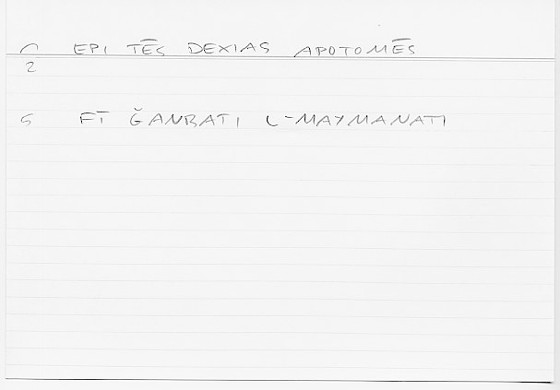 EPI TĒS DEXIAS APOTOMĒS
2
FĪ ǦANBATI L-MAYMANATI